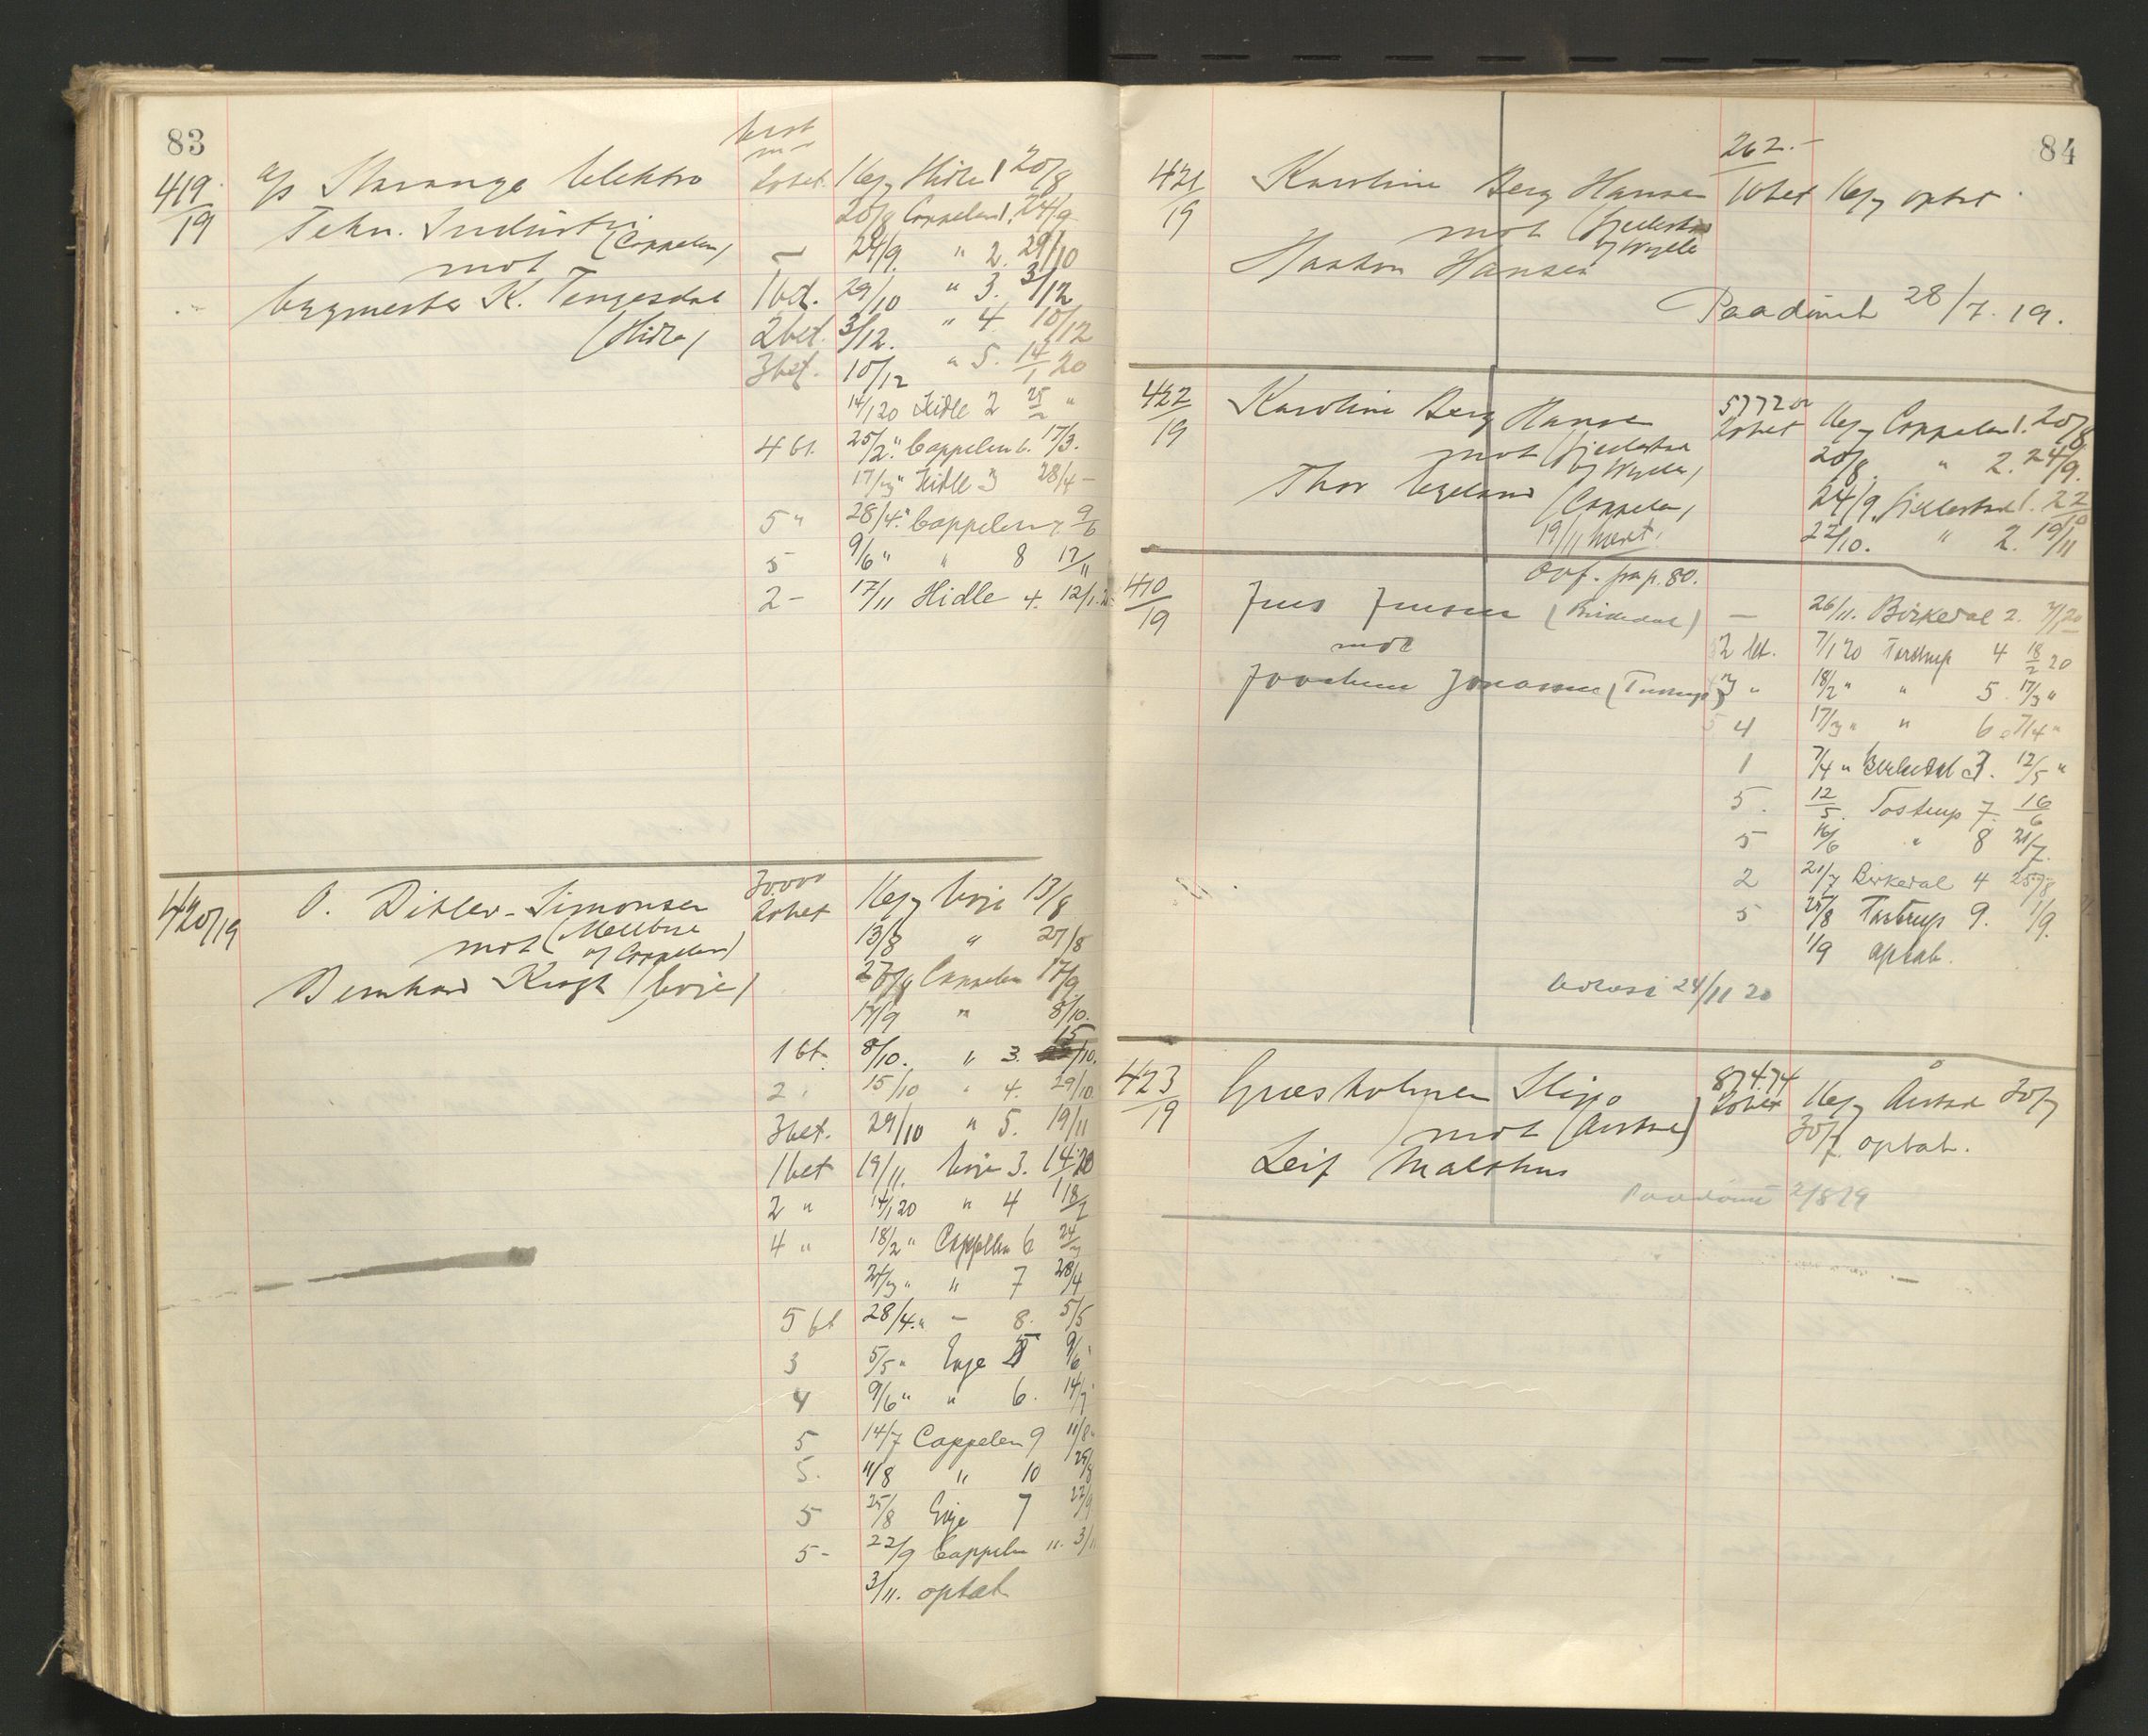 83
419
19
a/s Stavanger Elektro
Tekn. Industri
(Cappelen)
mot
bygmester K. Tengesdal
(Hidle)
16/7 Hidle 1 20/8
20/8 Cappelen 1. 24/9
— 24/9. " 2. 29/10
1 bet. 29/10 " 3. 3/12
2 bet. 3/12. " 4. 10/12
3 bet. 10/12 " 5. 14/1 20
14/1 20 Hidle 2 25/2 "
4 bt. 25/2 " Cappelen 6. 17/3.
17/3 " Hidle 3 28/4 –
5 " 28/4 " Cappelen 7. 9/6
5 9/6 " " 8 17/11
2 – 17/11 Hidle 4. 12/1
420/19
O. Ditlev-Simonsen
mot (Mellbye
og Cappelen)
Bernhard Krogh (Evje)
30000
16/7 Evje 13/8
13/8 " 27/8
27/8 Cappelen 17/9
17/9 " 8/10.
1 bt. 8/10. " 3. 15/10.
2 15/10 " 4. 29/10.
3 bet. 29/10 " 5. 19/11
1 bet 19/11. Evje 3. 14/1 20
2 " 14/1 20 " 4 18/2
4 " 18/2 " Cappelen 6 24/3
24/3 " " 7 28/4
5 bt 28/4. " – 8. 5/5
3 5/5 " Evje 5 9/6
4 9/6 " " 6. 14/7
5 14/7 Cappelen 9 11/8
5. 11/8 " 10 25/8
5 25/8 Evje 7 22/9
5 – 22/9 Cappelen 11. 3/11
3/11. optat
84
262.–
421
19
Karoline Berg Hansen
10 bet 16/7 optat
mot (Gjellestad
og Wylle
Haakon Hansen
Paadømt 28/7. 19.
422
19
Karoline Berg Hansen
16/7 Cappelen 1. 20/8
mot (Gjellestad
og Wylle)
20/8. " 2. 24/9.
Thor Egeland (Cappelen)
24/9. Gjellestad 1. 22/10
19/11 hævet.
22/10. " 2. 19/11
410
19
Ovf. fra p. 80.
Jens Jensen (Birkedal)
mot
— 26/11. Birkedal 2. 7/1 20
2 bt. 7/1 20 Tostrup 4 18/2 20
Joachim Jonassen (Tostrup)
3 " 18/2 " " 5. 17/3 "
4 17/3 " " 6. 7/4 "
1 7/4 " Birkedal 3. 12/5 "
5. 12/5. Tostrup 7. 16/6
5 16/6 " 8 21/7.
2 21/7 Birkedal 4 25/8
5 25/8 Tostrup 9. 1/9.
1/9 optat.
24/11 20
423
19
Græsholmen Slip
874.74
16/7 Aarstad 30/7
mot (Aarstad)
30/7. optat.
Leif Malthus
Paadømt 2/8 19